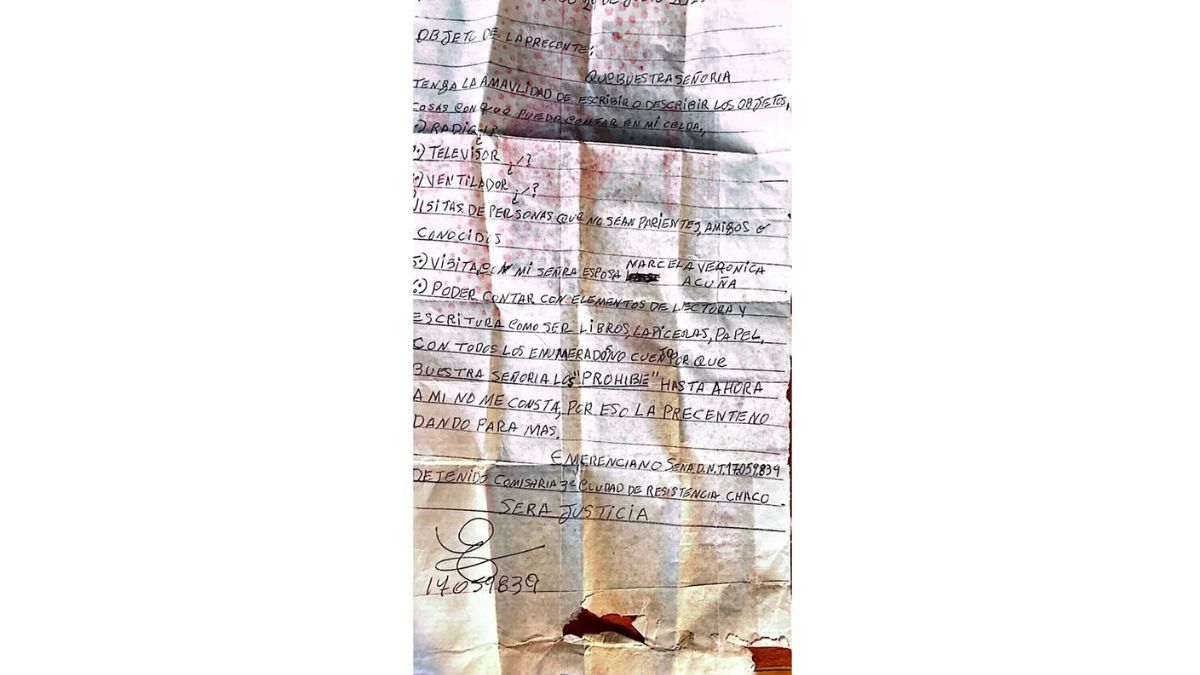 DE JULIO 202
OBJETO DE LA PRECENTE:
QUE BUESTRA SEÑORIA
TENGA LA AMAVLIDAD DE ESCRIBIR O DESCRIBIR LOS OBJETOS,
COSAS CON QUE PUEDO CONTAR EN MI CELDA,
1) RADIO ¿?
2•) TELEVISOR ¿/?
3•) VENTILADOR ¿/?
VISITAS DE PERSONAS QUE NO SEAN PARIENTES, AMIGOS O
CONOCIDOS
5•) VISITA CON MI SEÑRA ESPOSA MARCELA VERONICA
ACUÑA
6•) PODER CONTAR CON ELEMENTOS DE LECTURA Y
ESCRITURA COMO SER LIBROS, LAPICERAS, PAPEL,
CON TODOS LOS ENUMERADOS NO CUENTO POR QUE
BUESTRA SEÑORIA LOS "PROHIBE" HASTA AHORA
A MI NO ME CONSTA, POR ESO LA PRECENTE NO
DANDO PARA MAS.
EMERENCIANO SENA. D.N.I. 17059839
DETENIDO COMISARIA 3ª CIUDAD DE RESISTENCIA CHACO.
SERA JUSTICIA
17059839